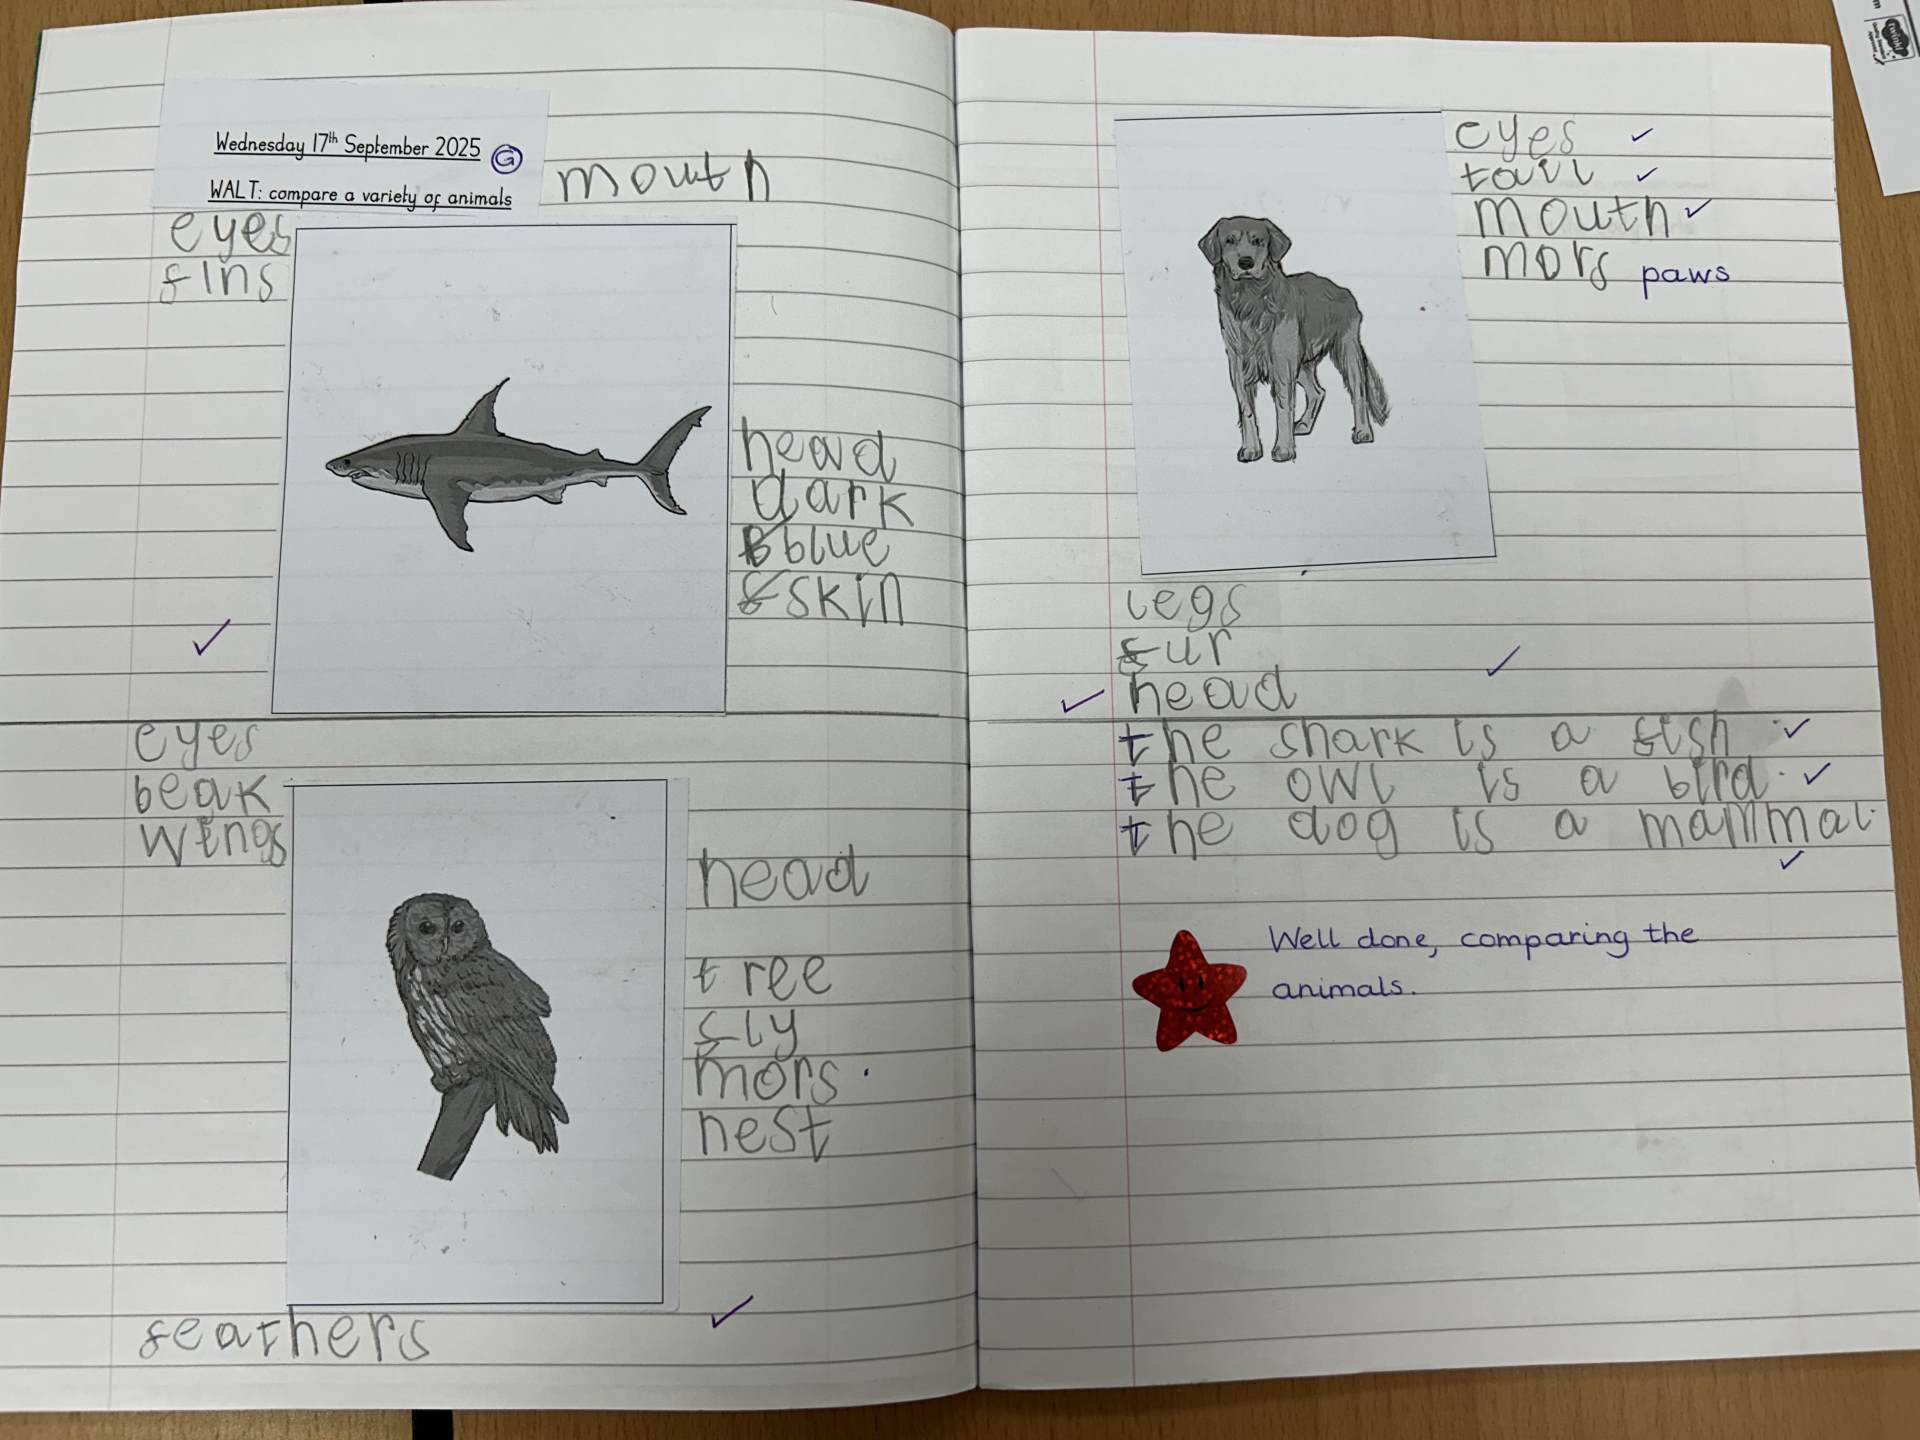 Wednesday 17th September 2025 G
WALT: compare a variety of animals
mouth
eyes
fins
head
dark
blue
skin
eyes
beak
wings
head
tree
fly
mors
nest
feathers
eyes
tail
mouth
mors paws
legs
fur
head
the shark is a fish.
the owl is a bird.
the dog is a mammal.
Well done, comparing the
animals.